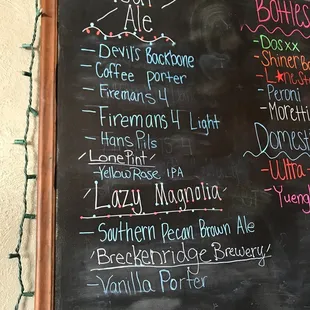 Ale
- Devil's Backbone
- Coffee porter
- Firemans 4
- Firemans 4 Light
- Hans Pils
Lone Pint
- Yellow Rose IPA
Lazy Magnolia
- Southern Pecan Brown Ale
Breckenridge Brewery
- Vanilla Porter
Bottles
- Dosxx
- Shiner
- Peroni
- Moretti
Domesti
- Ultra
- Yueng